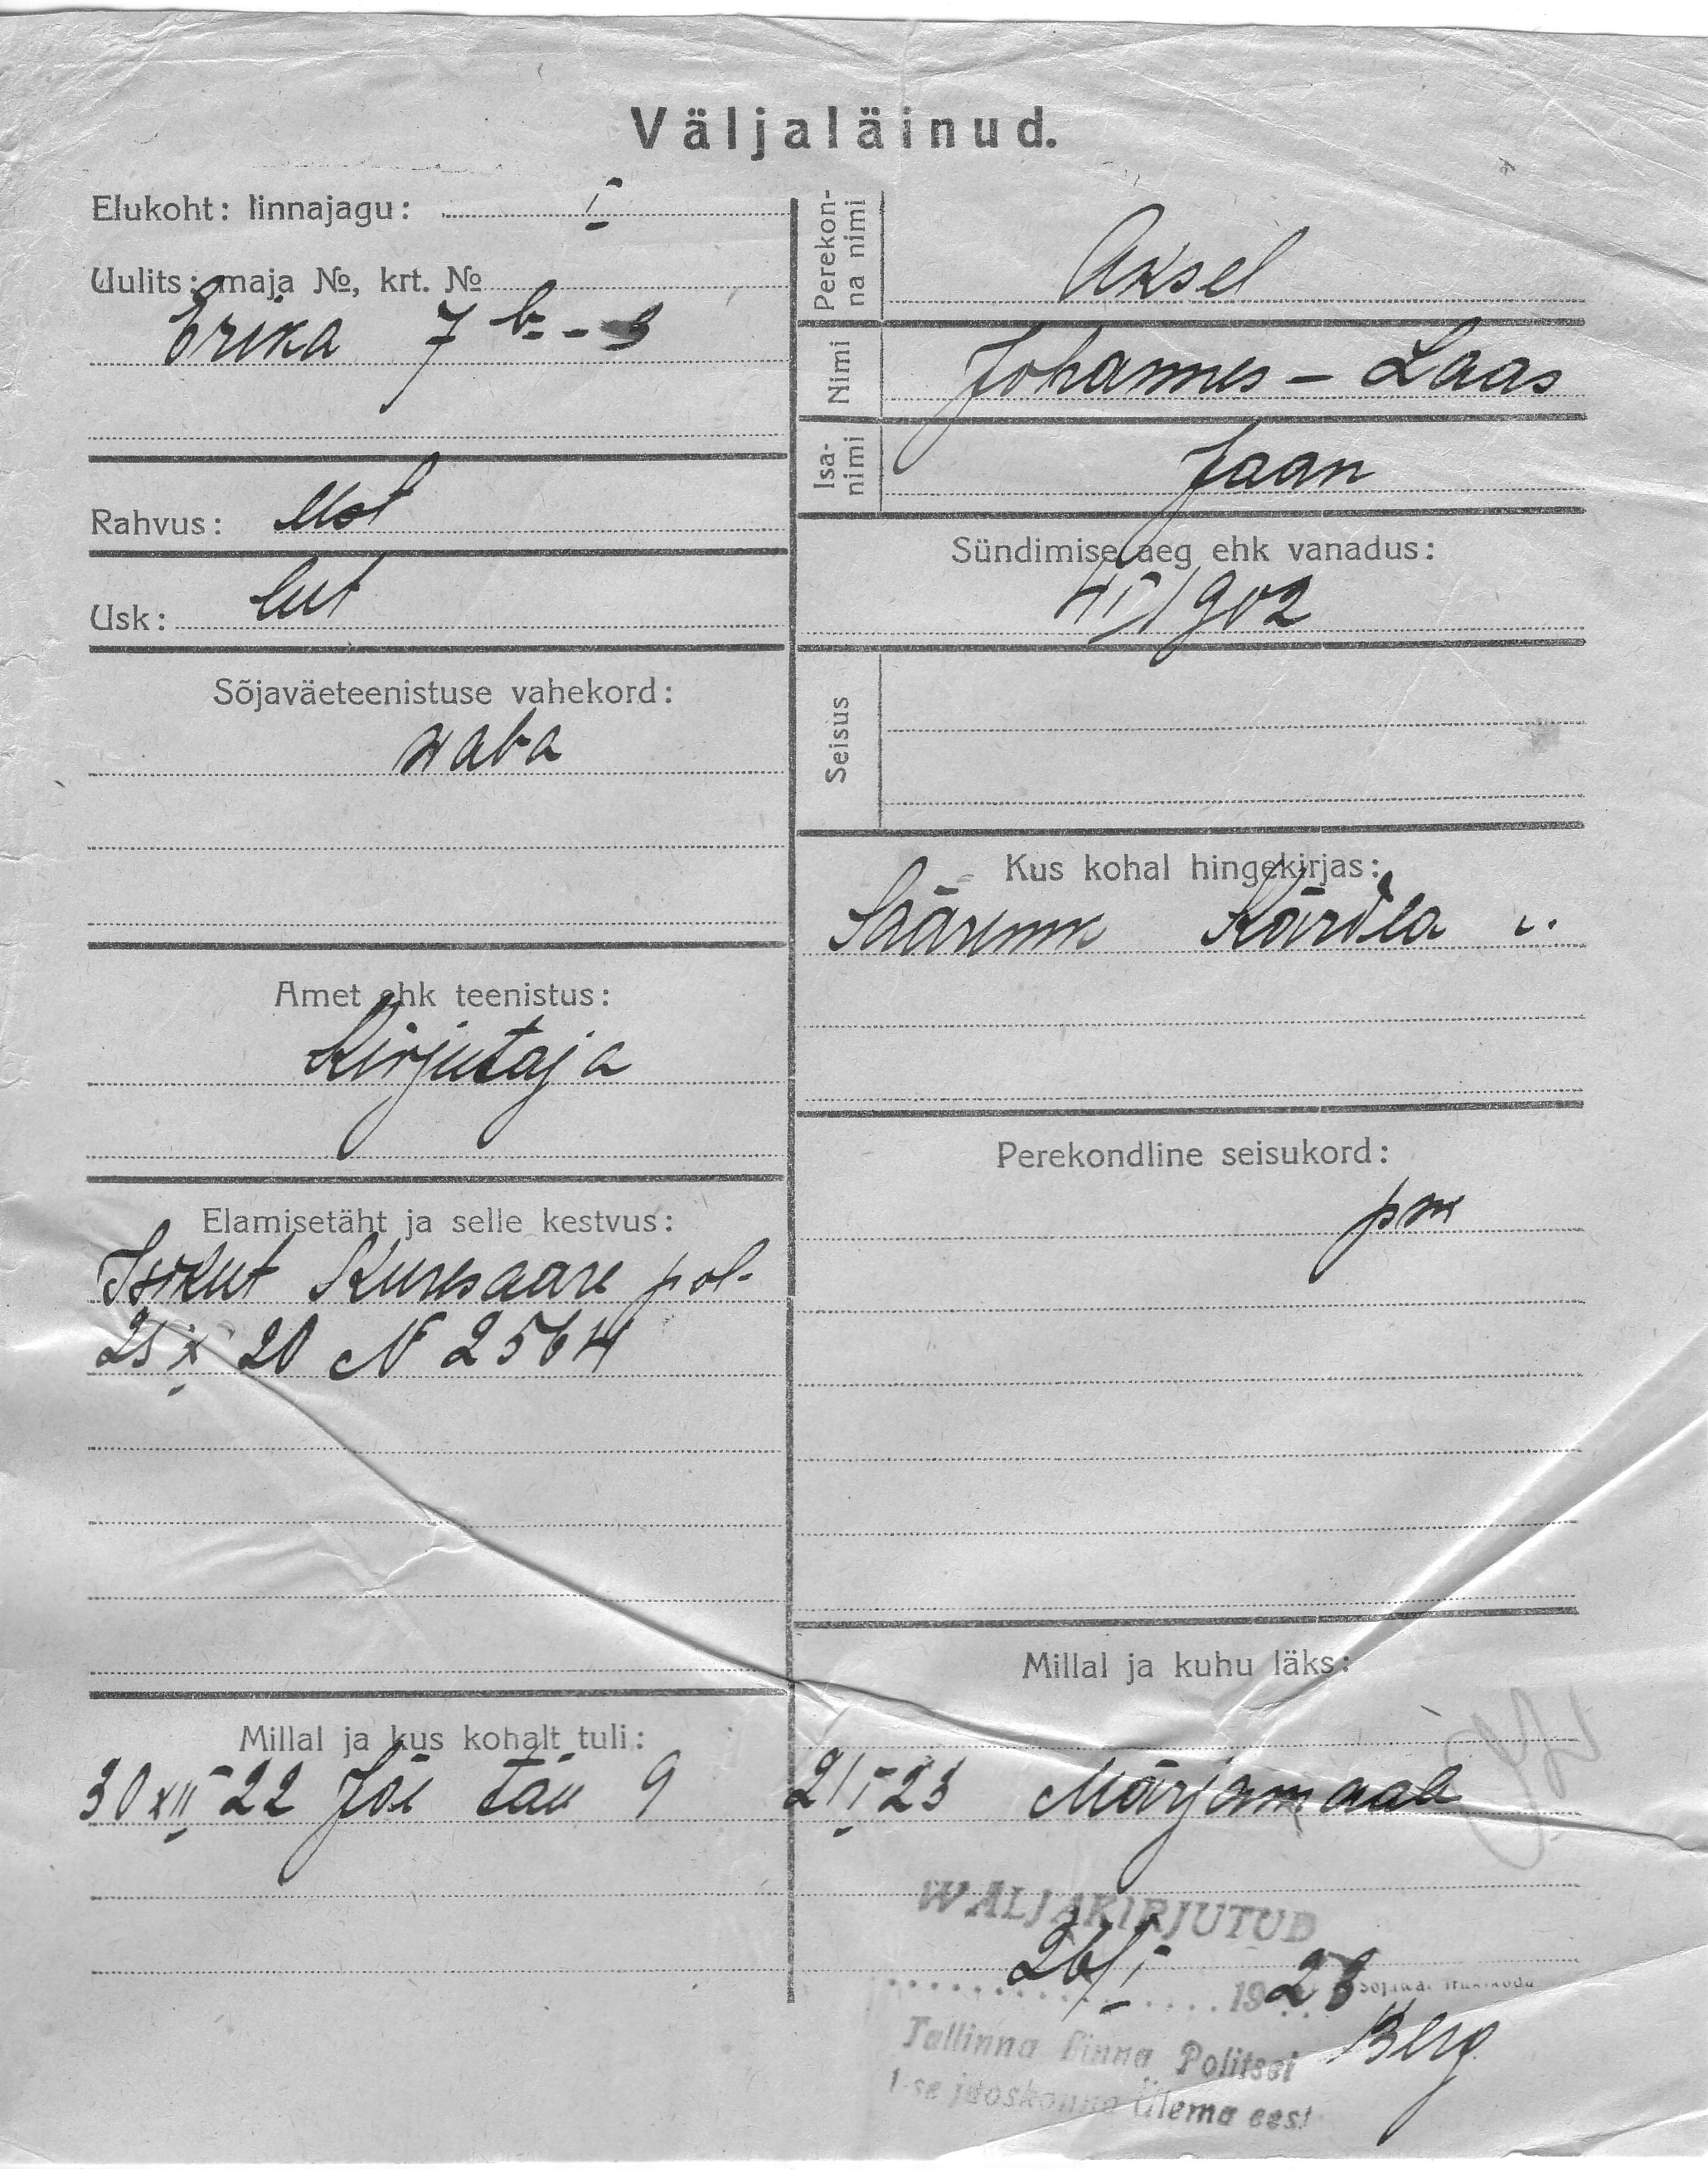 Väljaläinud.
Elukoht: linnajagu: I
Uulits: maja №, krt. №
Erika 7 b - 3
Rahvus: Est
Usk: lut
Sõjaväeteenistuse vahekord:
waba
Amet ehk teenistus:
Kirjutaja
Elamisetäht ja selle kestvus:
Isikut Kuresaare pol.
25 X 20 N 2564
Millal ja kus kohalt tuli:
30 XII 22 Jõe tän 9
Perekonna nimi
Aksel
Nimi
Johannes - Laas
Isanimi
Jaan
Sündimise aeg ehk vanadus:
4 I 1902
Seisus
Kus kohal hingekirjas:
Sääremm Kärdla v.
Perekondline seisukord:
pm
Millal ja kuhu läks:
21 I 23 Märjamaale
WALJAKIRJUTUD
26/I 1923
Sõjaväe trükikoda
Tallinna Linna Politsei
Berg
1-se jaoskonna Ülema eest